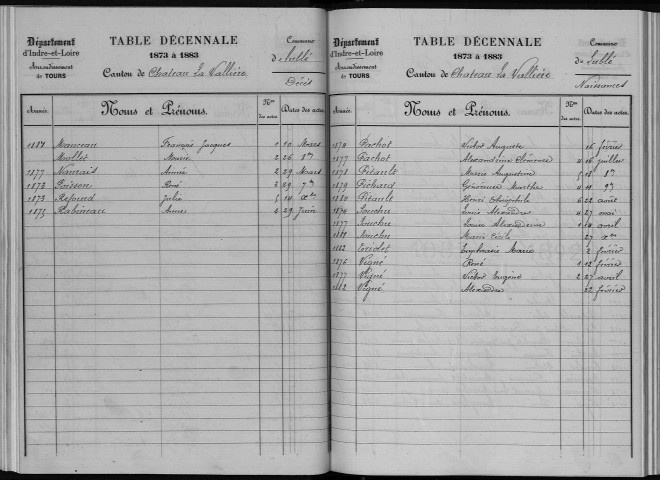 Département
d'Indre-et-Loire
Arrondissement
de TOURS
TABLE DÉCENNALE
1873 à 1883
Canton de Château La Vallière
Commune
de
Décès
Année.
Noms et Prénoms.
Nos des actes.
Dates des actes.
Manceau François Jacques 1 10 Mars
Mollet Marie 2 26 8bre
1877 Année 2 29 Mars
1872 Poisson René 2 29 7bre
1873 Julie 5 14
1875 Rabineau 2 29 Juin
Département
d'Indre-et-Loire
Arrondissement
de TOURS
TABLE DÉCENNALE
1873 à 1883
Canton de Château La Vallière
Commune
de
Naissances
Année.
Noms et Prénoms.
Nos des actes.
Dates des actes.
1874 Pachot Victor Auguste 16 février
1877 Pachot Alexandrine Clémence 4 16 juillet
1878 Pitault Marie Augustine 5 18 8bre
1879 Pichard Marthe 4 11 9bre
1880 Pitault Henri Théophile 6 22 août
1874 Louis Alexandre 4 27 mai
1877 Louise Alexandrine 1 18 avril
Marie Cécile 27
1882 Euphrasie Marie 2 février
1876 Vigné René 1 12 février
1877 Vigné Victor Eugène 2 27 avril
1882 Vigné Alexandre 22 février